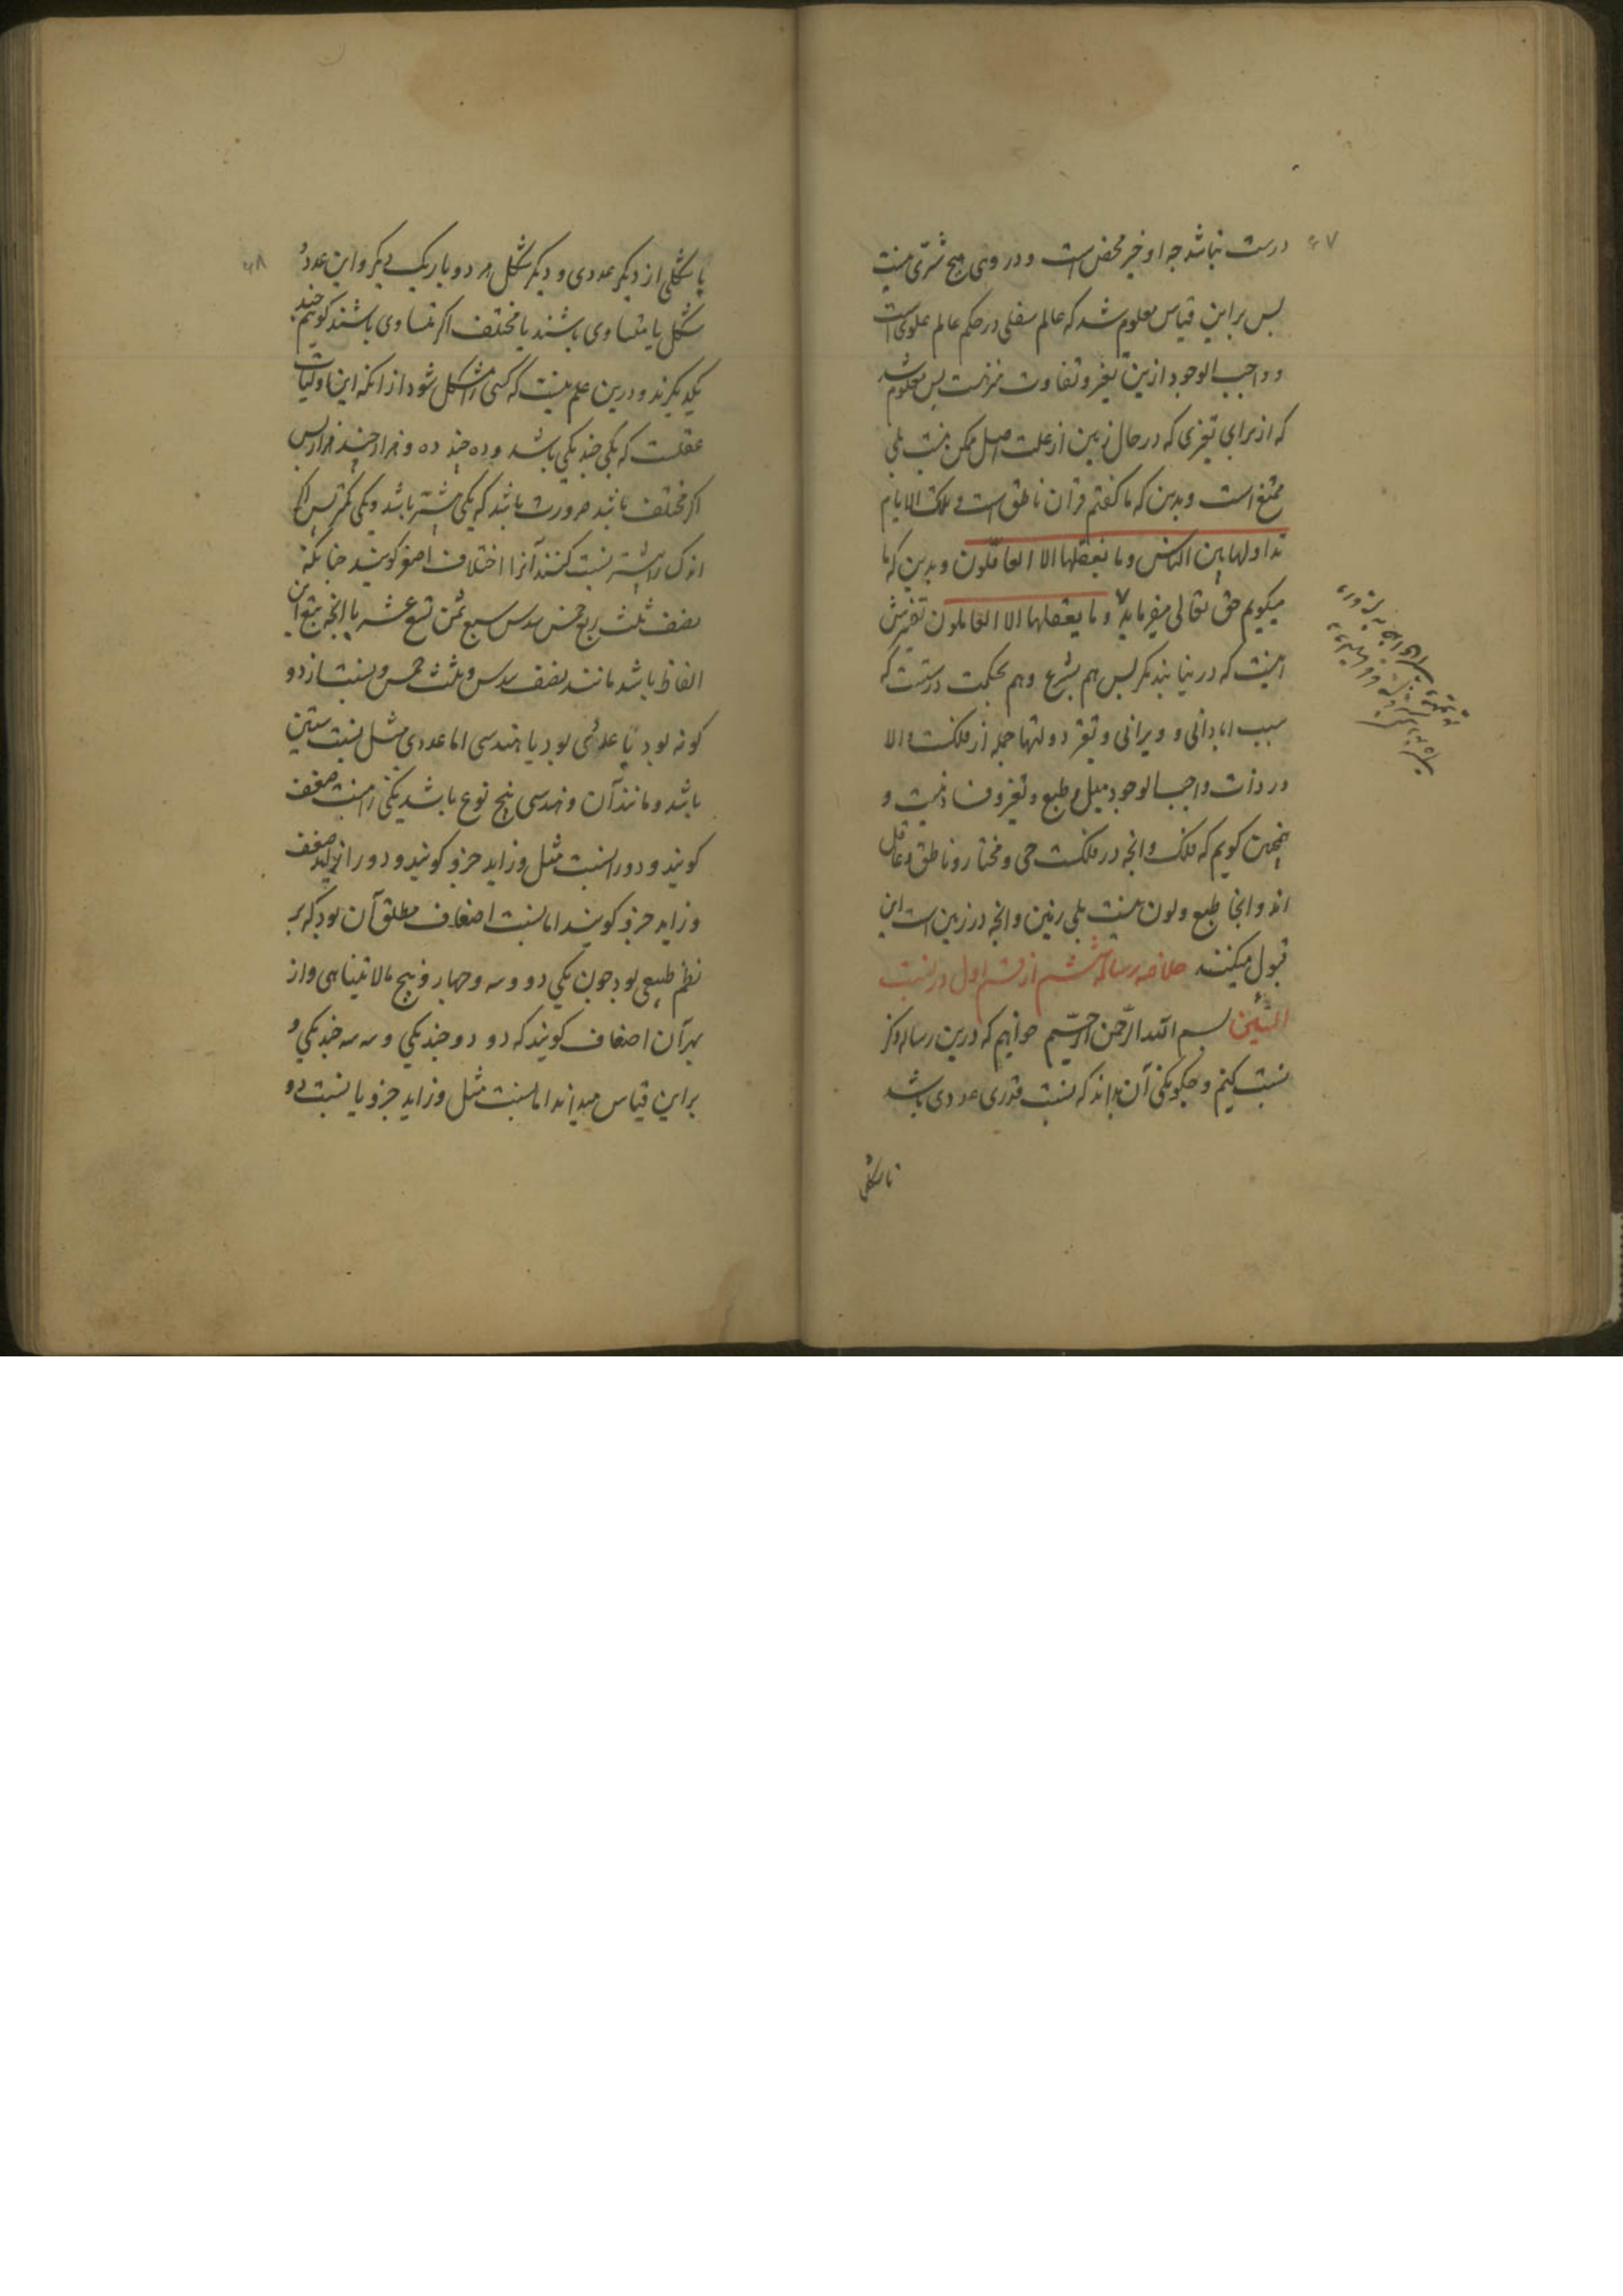 ۶۷
درست نباشد جه او خیر محض است و در وی هیچ شرّی نیست
بس بر این قیاس معلوم شد که عالم سفلی در حکم عالم علوی است
و واجب الوجود ازین تغیر و تفاوت منزهست بس معلوم شد
که از برای تغیری که در حال زمین از علت اصل ممکن نیست بلی
ممتنع است و بدین که ما کفتم قران ناطق است و تلک الایام
نداولها بین الناس و ما یعقلها الا العاقلون و بدین که ما
میکویم حق تعالی میفرماید و ما یعقلها الا العالمون تفسیرش
اینست که در بیابند مکر بس هم بشرع و هم بحکمت درستست که
سبب ابادانی و ویرانی و تغیر دولتها جمله از فلکست و الا
در ذات واجب الوجود میل و طبع و تغیر و فساد نیست و
همجنین کویم که فلک و انجه در فلکست حی و مختار و ناطق و عاقل
اند و انجا طبع و لون نیست بلی زمین و انجه در زمین است این
قبول میکنند خلاصه رساله ششم از قسم اول در نسبت
بسم الله الرّحمن الرّحیم خواهیم که درین رساله ذکر
نسبت کنیم و جکونکی آن بداند که نسبت قدری عددی باشد
یا شکلی
۶۸
یا شکلی از دیکر عددی و دیکر شکل هر دو با یک دیکر و این عدد و
شکل یا متساوی باشند یا مختلف اکر متساوی باشند کویم جند
یکدیکرند و درین علم نیست که کسی را مشکل شود از انکه این اولیات
عقلست که یکی جند یکی باشد و ده جند ده و هزار جند هزار بس
اکر مختلف باشد ضرورت باشد که یکی بیشتر باشد و یکی کمتر بس اکر
اندک را با بیشتر نسبت کنند آنرا اختلاف اصغر کویند جنانکه
نصف ثلث ربع خمس سدس سبع ثمن تسع عشر یا انجه بتبع این
الفاظ باشد مانند نصف سدس و ثلث خمس و نسبت از دو
کونه بود یا عددی بود یا هندسی اما عددی مثل نسبت ستین
باشد و مانند آن و هندسی پنج نوع باشد یکی را نسبت ضعف
کویند و دو را نسبت مثل و زاید جزو کویند و دو را نسبت ضعف
و زاید جزو کویند اما نسبت اضعاف مطلق آن بود که بر
نظم طبیعی بود جون یکی دو و سه و جهار و پنج مالا یتناهی و از
بهر آن اضعاف کویند که دو دو جند یکی و سه سه جند یکی و
براین قیاس میدانند اما نسبت مثل و زاید جزو یا نسبت دو